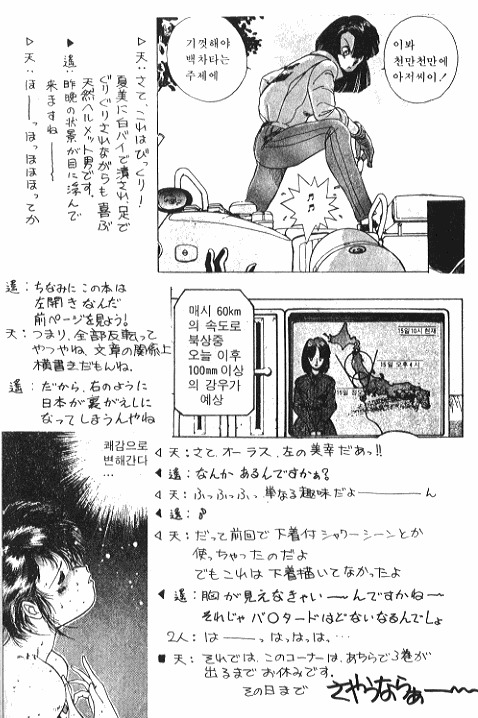 이봐
천만천만에
아저씨이!
기껏해야
백차타는
주제에
♪♬
▷天:さて、これはびっくり!
夏美に白バイで潰され、足で
ぐりぐりされながらも喜ぶ
天然ヘルメット男です。
▶遥:昨晩の状景が目に浮んで
来ますね———
▷天:ほ——っほっほほほってか
遥:ちなみにこの本は
左開きなんだ
前ページを見よう!
天:つまり、全部反転って
やつやね、文章の関係上
横書きだもんね。
遥:だから、右のように
日本が裏がえしに
なってしまうんやね
매시 60km
의 속도로
북상중
오늘 이후
100mm 이상
의 강우가
예상
15일 10시 현재
15일 오후4시
쾌감으로
변해간다
…
◁天:さて、オーラス、左の美幸だあっ!!
◀遥:なんかあるんですかぁ?
◁天:ふっふっふっ単なる趣味だよ————ん
◀遥:♂
◁天:だって前回で下着付シャワーシーンとか
使っちゃったのだよ
でもこれは下着描いてなかったよ
◀遥:胸が見えなきゃい〜んですかね〜
それじゃバ〇タードはどないなるんでしょ
2人:は——っはっはっは、…
■天:それでは、このコーナーは、あちらで3巻が
出るまでお休みです。
その日まで さやうならぁ〜〜